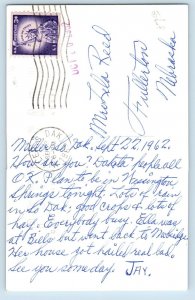 Mrs Lela Reed
Fullerton
Nebraska
Dak. Sept 22, 1962.
How are you? Dakota people all
O.K. Planto be in Wessington
Springs tonight. Lots of rain
in So Dak, good crops & lots of
hay. Everybody busy. Ella was
at Bills but went back to Mobridge
Her house got hailed real bad.
See you someday. JAY.